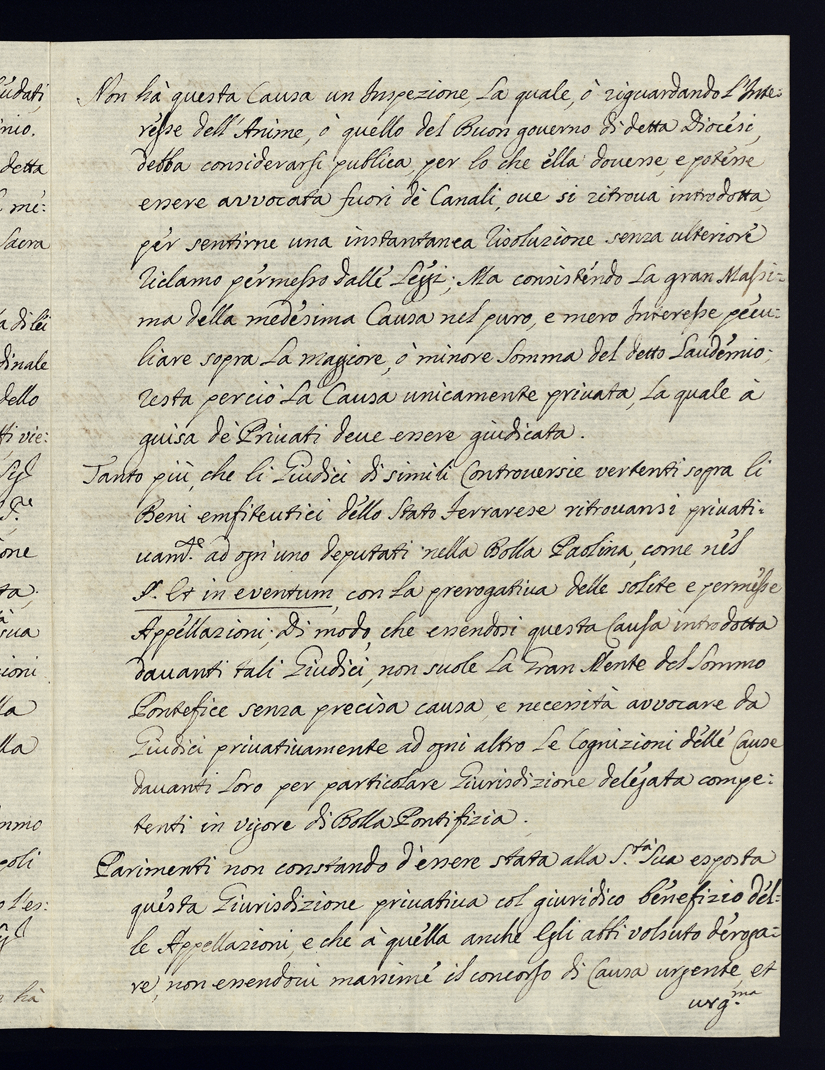 Non hà questa Causa un Inspezione, La quale, ò riguardando L'Inte:
resse dell'Anime, ò quello del Buon governo di detta Diocesi,
debba considerarsi publica, per lo che ella dovesse, e potesse
essere avvocata fuori de Canali, oue si ritroua introdotta,
per sentirne una instantanea risoluzione senza ulteriore
riclamo permesso dalle Leggi; Ma consistendo La gran Massi:
ma della medesima Causa nel puro, e mero Interesse pecu:
liare sopra La magiore, ò minore Somma del detto Laudemio
resta perciò La Causa unicamente priuata, La quale à
guisa de Priuati deue essere giudicata.
Tanto più, che li Giudici di simili Controuersie vertenti sopra li
Beni emfiteutici dello Stato Ferrarese ritrouansi priuati:
uam.te ad ogn'uno deputati nella Bolla Paolina, come nel
§. Et in eventum, con La prerogatiua delle solite e permesse
Appellazioni; Di modo, che essendosi questa Causa introdotta
dauanti tali Giudici, non suole La Gran Mente del Sommo
Pontefice senza precisa causa, e necessità avvocare da
Giudici priuatiuamente ad ogni altro Le Cognizioni delle Cause
dauanti Loro per particolare Giurisdizione delegata compe:
tenti in vigore di Bolla Pontifizia.
Parimenti non constando d'essere stata alla S.tà Sua esposta
questa Giurisdizione priuatiua col giuridico benefizio del:
le Appellazioni, e che à quella anche Egli abbi volsuto deroga:
re, non essendoui massime il concorso di Causa urgente, et
urg.ma
udati,
nio.
detta
mè:
Sacra
a di lei
dinale
dello
tti vie:
one
ta,
sua
zioni
lla
lla
mmo
poli
o l'es:
hà